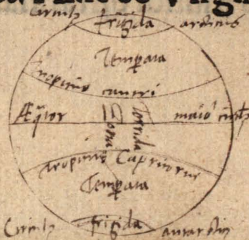 Circulus frigida arcticus
Temperata
Tropicus cancri
Æquator Zona Torrida maior circulus
Tropicus Capricorni
Temperata
Circulus frigida antarcticus